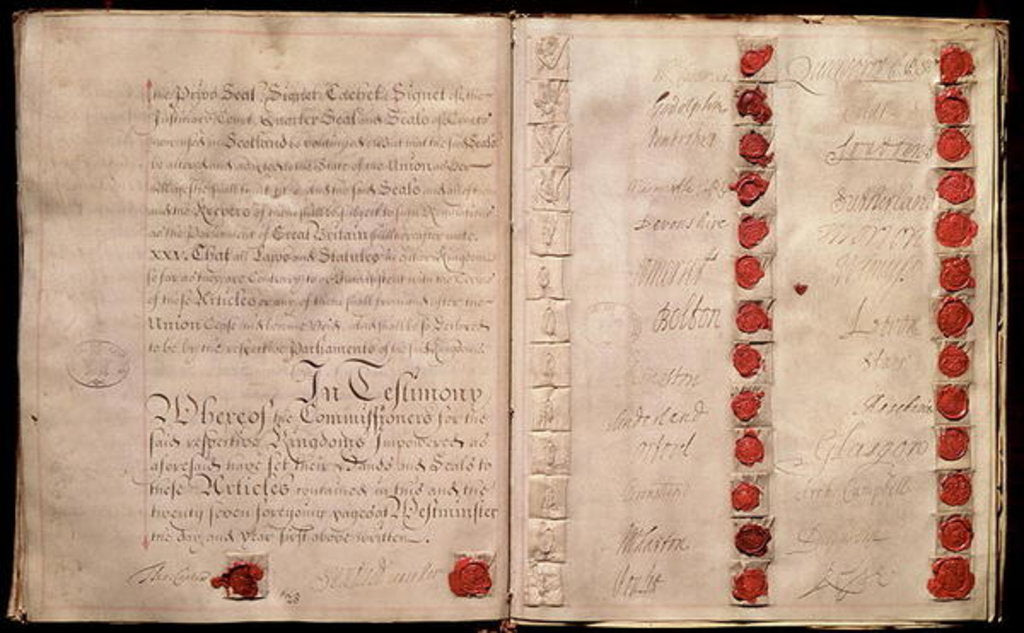 the Privy Seal Signet Casset Signet of the
Justiciary Court Quarter Seal and Seals of Courts
now used in Scotland be continued But that the said Seals
be altered and adapted to the State of the Union as Her
Majesty shall think fit And the said Seals and all of them
and the Keepers of them shall be subject to such Regulations
as the Parliament of Great Britain shall hereafter make
XXV. That all Laws and Statutes in either Kingdom
so far as they are Contrary to or Inconsistent with the Terms
of these Articles or any of them shall from and after the
Union Cease and become Void And shall be so Declared
to be by the respective Parliaments of the said Kingdoms
In Testimony
Whereof the Commissioners for the
said respective Kingdoms Impowered as
aforesaid have set their Hands and Seals to
these Articles contained in this and the
twenty seven foregoing pages at Westminster
the day and year first above written
28
Godolphin
Pembroke
Devonshire
Somerset
Bolton
Kingston
Sunderland
Orford
Townshend
Wharton
Queensberry
Seafield
Sutherland
Morton
Wemyss
Leven
Stair
Rosebery
Glasgow
Arch Campbell
Dupplin